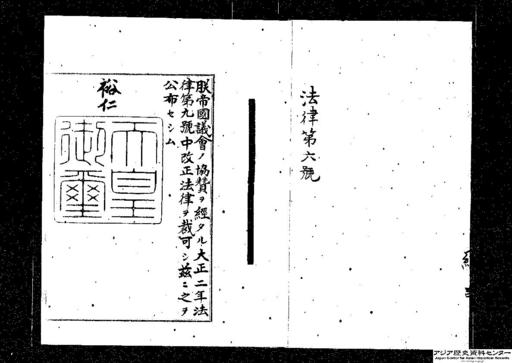 法律第六號
朕帝國議會ノ協賛ヲ經タル大正二年法
律第九號中改正法律ヲ裁可シ茲ニ之ヲ
公布セシム
裕仁
天皇
御璽
アジア歴史資料センター
Japan Center for Asian Historical Records